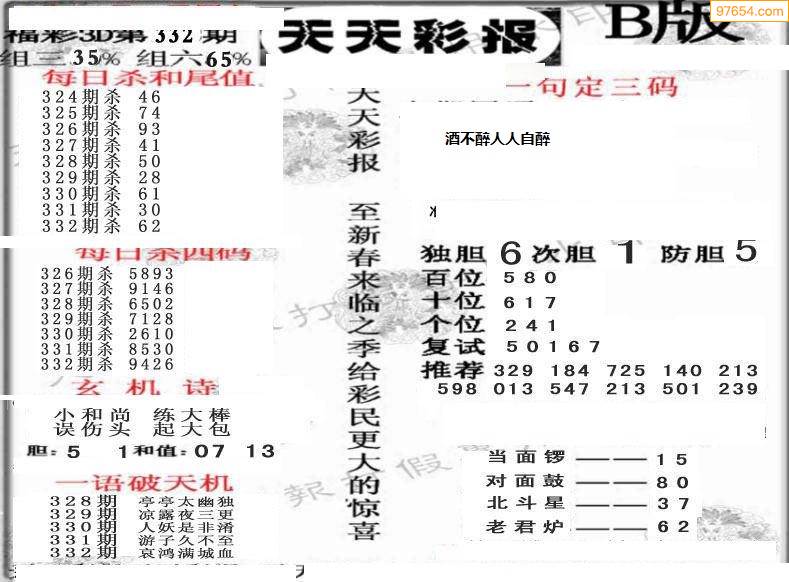 97654.com
福彩3D第332期
组三35% 组六65%
天天彩报
B版
每日杀和尾值
324期杀 46
325期杀 74
326期杀 93
327期杀 41
328期杀 50
329期杀 28
330期杀 61
331期杀 30
332期杀 62
每日杀四码
326期杀 5893
327期杀 9146
328期杀 6502
329期杀 7128
330期杀 2610
331期杀 8530
332期杀 9426
玄机诗
小和尚 练大棒
误伤头 起大包
胆:5 1和值:07 13
一语破天机
328期 亭亭太幽独
329期 凉露夜三更
330期 人妖是非淆
331期 游子久不至
332期 哀鸿满城血
天天彩报 至新春来临之季给彩民更大的惊喜
一句定三码
酒不醉人人自醉
独胆 6 次胆 1 防胆 5
百位 580
十位 617
个位 241
复试 50167
推荐 329 184 725 140 213
598 013 547 213 501 239
当面锣——15
对面鼓——80
北斗星——37
老君炉——62